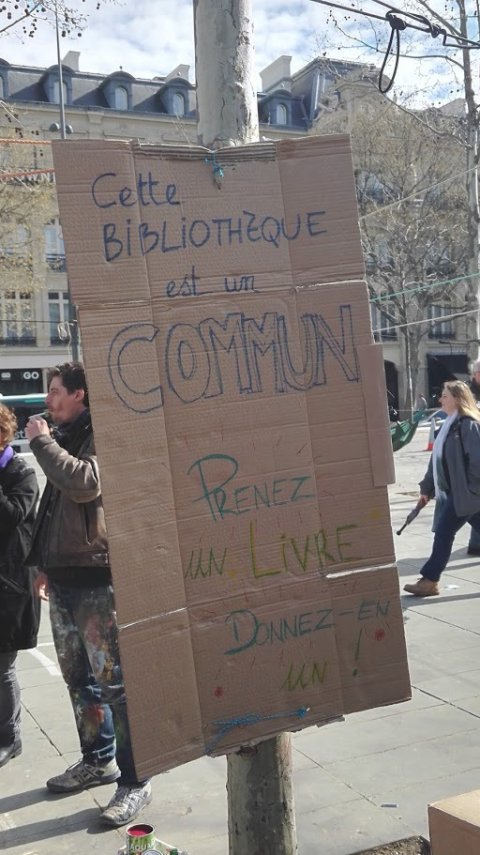 Cette
BiBLiOTHÈQUE
est un
COMMUN
PRENEZ
UN LiVRE
DONNEZ-EN
UN !
GO